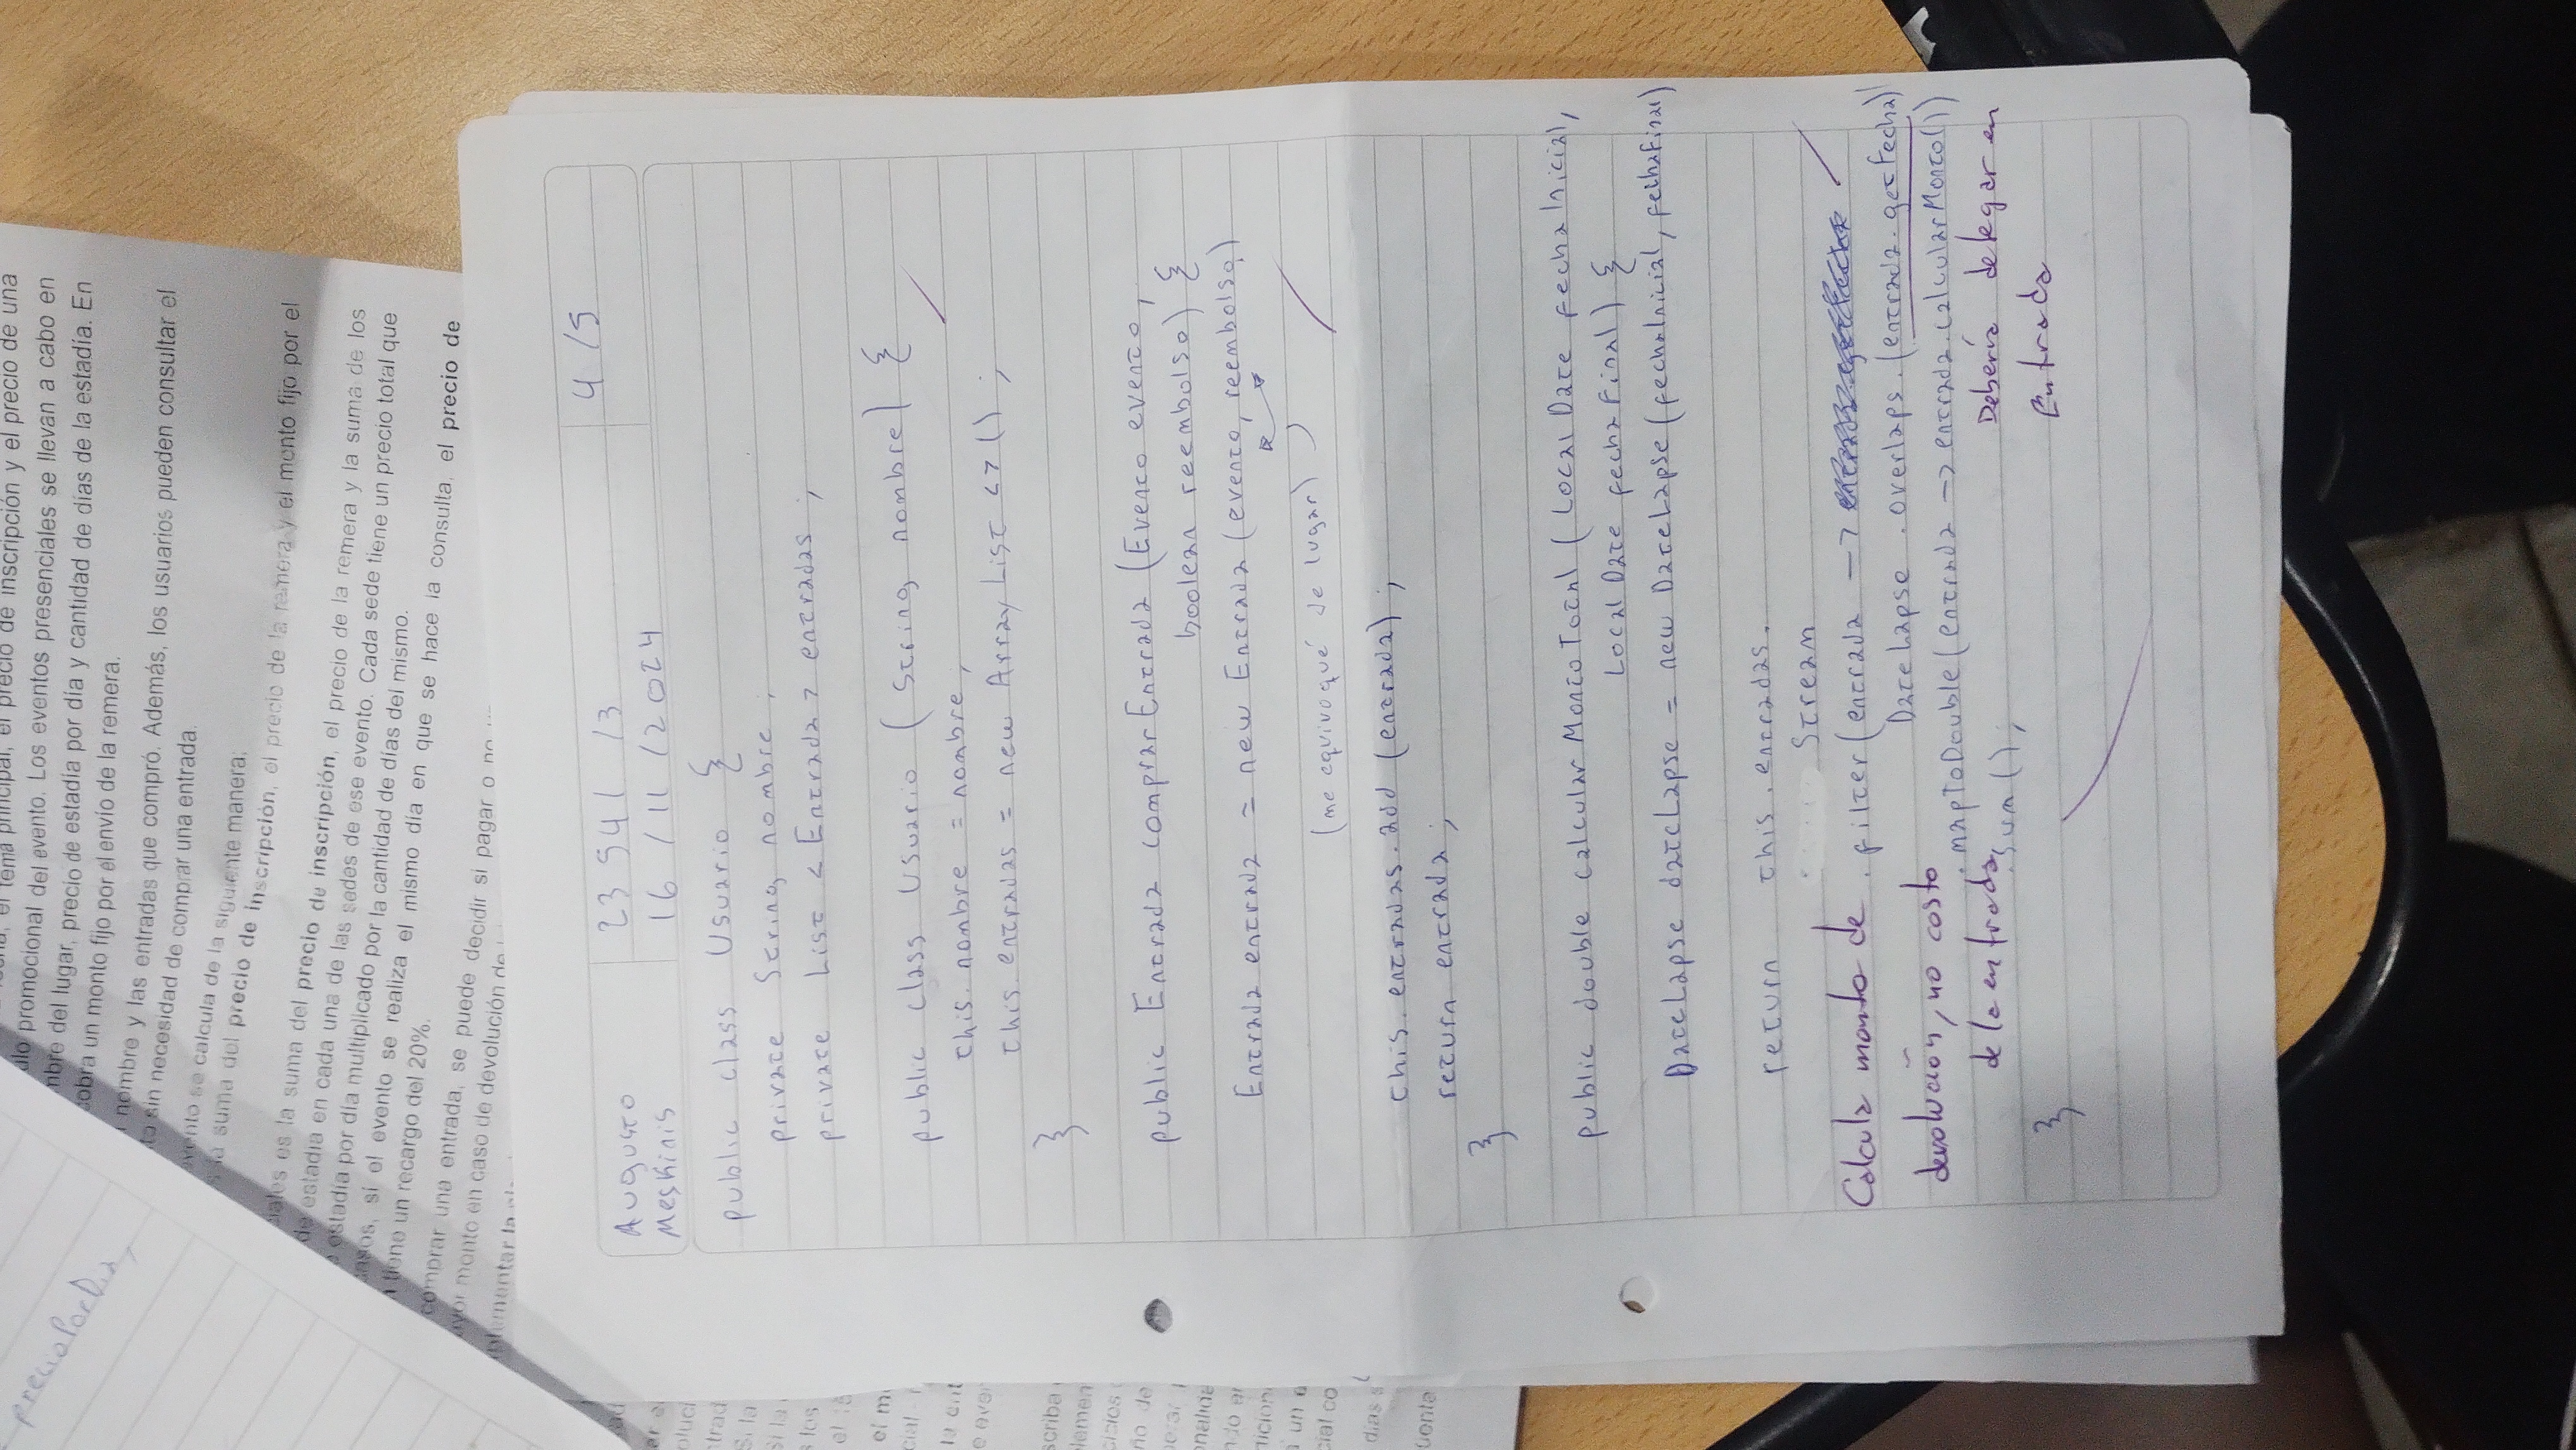 precioPorDia,
el tema principal, el precio de inscripción y el precio de una
promocional del evento. Los eventos presenciales se llevan a cabo en
mbre del lugar, precio de estadía por día y cantidad de días de la estadía. En
cobra un monto fijo por el envío de la remera.
nombre y las entradas que compró. Además, los usuarios pueden consultar el
sin necesidad de comprar una entrada.
evento se calcula de la siguiente manera:
la suma del precio de inscripción, el precio de la remera y el monto fijo por el
ciales es la suma del precio de inscripción, el precio de la remera y la suma de los
de estadía en cada una de las sedes de ese evento. Cada sede tiene un precio total que
estadía por día multiplicado por la cantidad de días del mismo.
casos, si el evento se realiza el mismo día en que se hace la consulta, el precio de
tiene un recargo del 20%.
comprar una entrada, se puede decidir si pagar o no
ayor monto en caso de devolución de
plementar la
Augusto
Meskinis
23541 /3
16 / 11 / 2024
4 / 5
public class Usuario {
private String nombre ;
private List < Entrada > entradas ;
public class Usuario ( String nombre ) {
this. nombre = nombre ;
this. entradas = new ArrayList <> () ;
}
public Entrada comprarEntrada (Evento evento,
boolean reembolso) {
Entrada entrada = new Entrada (evento, reembolso)
(me equivoqué de lugar)
this. entradas. add (entrada) ;
return entrada ;
}
public double calcularMontoTotal ( LocalDate fechaInicial,
LocalDate fechaFinal ) {
DateLapse dateLapse = new DateLapse (fechaInicial, fechaFinal)
return this . entradas.
Stream
Calcula monto de . filter (entrada ->
DateLapse . overlaps. (entrada. getFecha)
devolución, no costo
. mapToDouble (entrada -> entrada. calcularMonto())
de la entrada. Debería delegar en
. sum () ;
Entrada
}